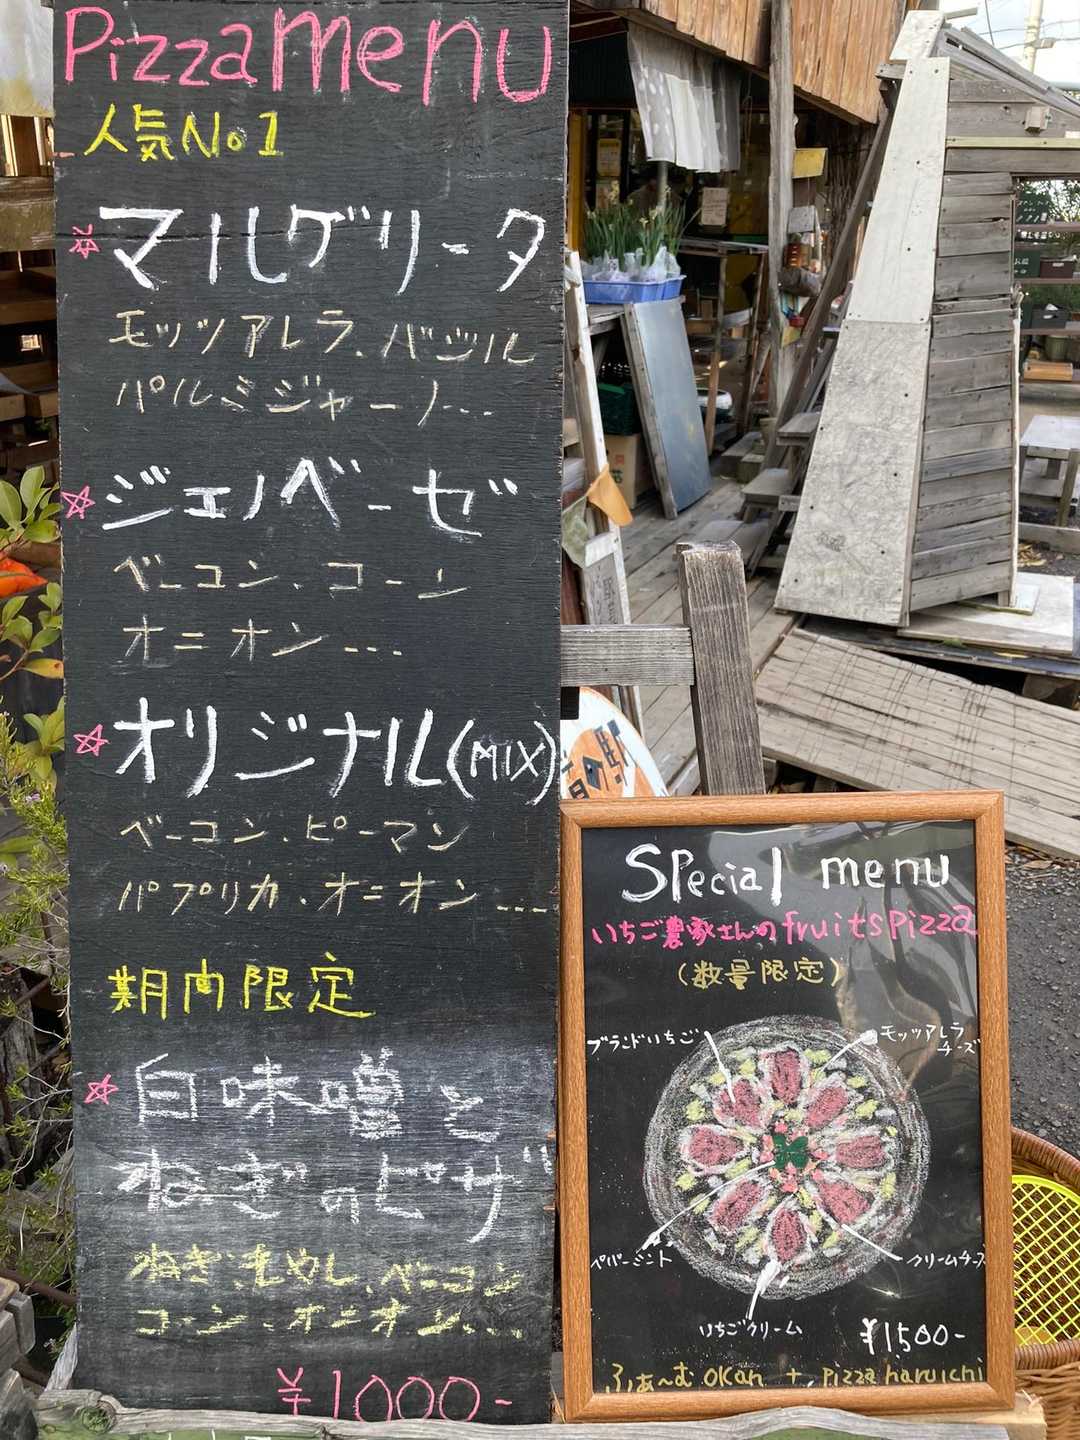 Pizza menu
人気No1
マルゲリータ
モッツアレラ、バジル
パルミジャーノ...
ジェノベーゼ
ベーコン、コーン
オニオン...
オリジナル(MIX)
ベーコン、ピーマン
パプリカ、オニオン...
期間限定
白味噌と
ねぎのピザ
ねぎ、もやし、ベーコン
コーン、オニオン...
¥1000-
Special menu
いちご農家さんのfruitsPizza
(数量限定)
ブランドいちご
モッツアレラ
チーズ
ペパーミント
クリームチーズ
いちごクリーム
¥1,500-
ふぁ〜む okan + pizza haruichi